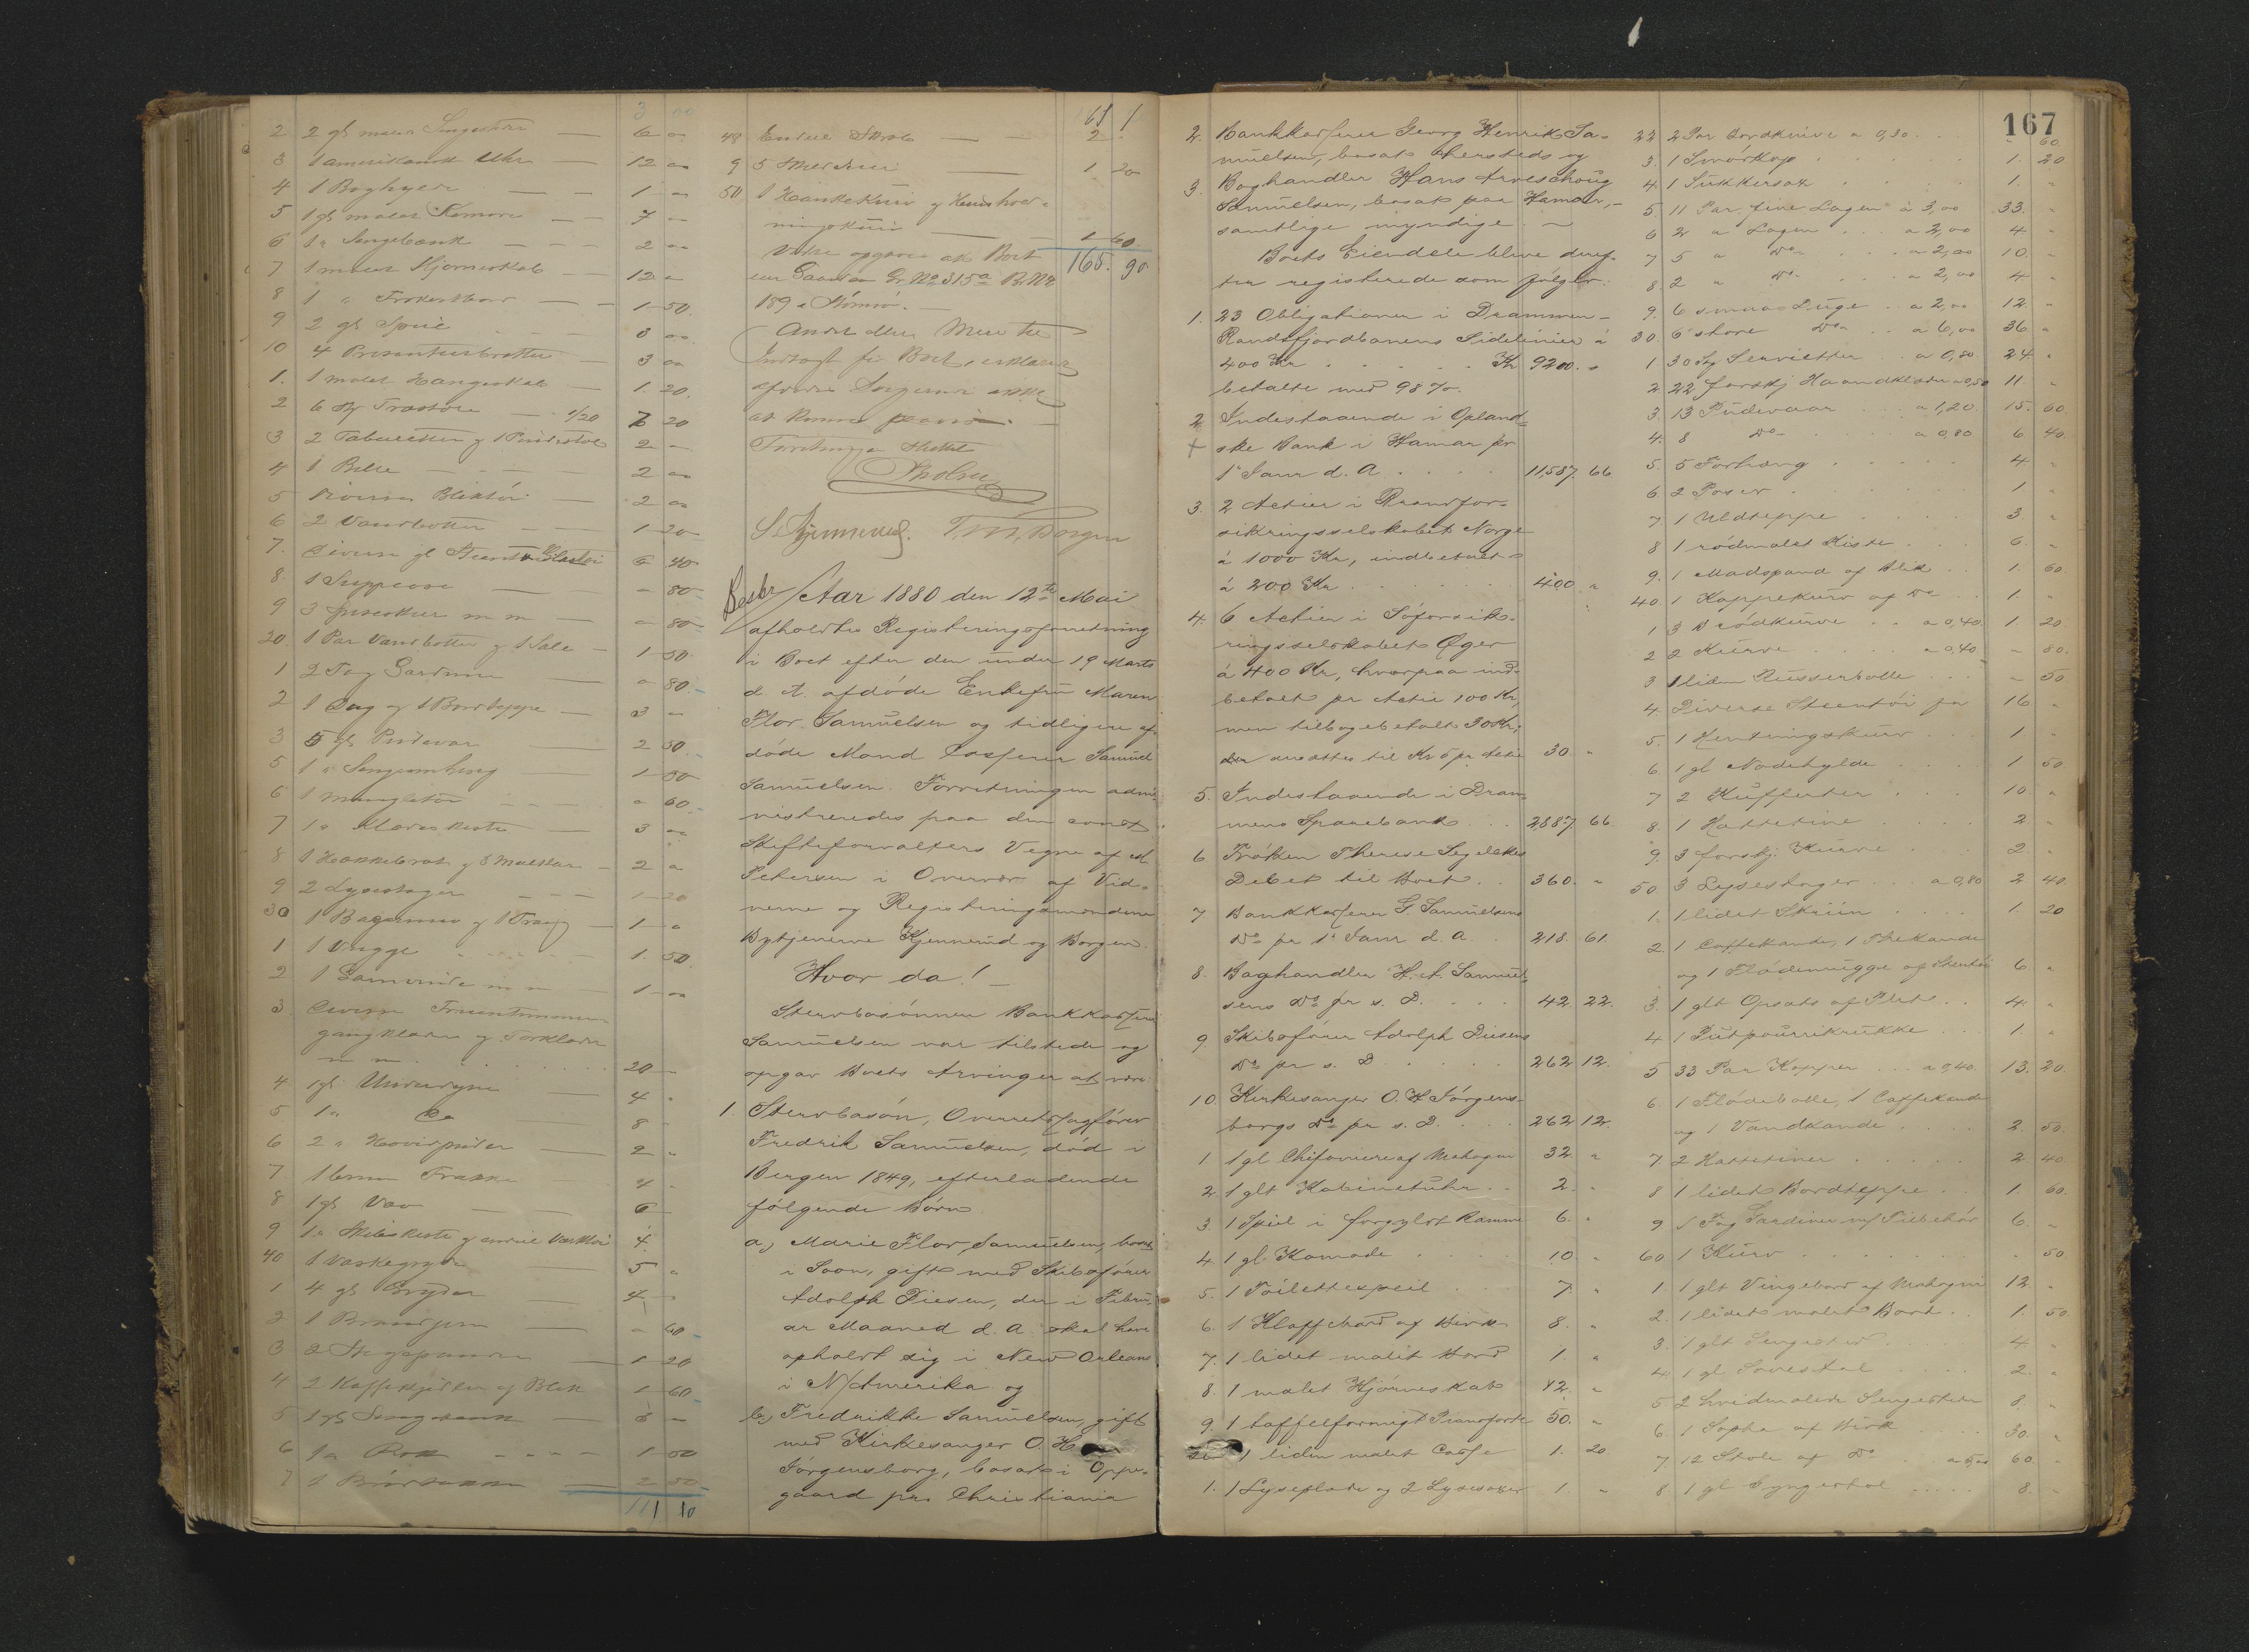 3 00
2 2 gl malet Sengesteder — 6 00
3 1 amerikansk Uhr — 12 00
4 1 Boghylde — 1 00
5 1 gl malet Komode — 7 —
6 1 " Sengebænk — 2 00
7 1 malet Hjørneskab — 12 "
8 1 " Frokostbord — 1 50.
9 2 gl Speile 8 00.
10 4 Presenteerbretter — 3 00
1. 1 malet Hængeskab — 1. 20.
2 6 Stk Træstole — 1/20 7 20
3 2 Taburetter og 1 Pindestol 2 —
4 1 Bilde — 2 00
5 Diverse Bliktøi — 2 00
6 2 Vandbøtter — 1 20
7. Diverse gl Steentøi Glastøi 6 40
8. 1 Suppeose — " 80
9 3 m m — " 80
20. 1 Par Vandbøtter og 1 Sale — 1 50
1 2 Fag Gardiner — " 80.
2 1 Dug og 1 Bordteppe — 3 —
3 5 gl Pudevar — 2 50.
5 1 " Sengeomheng 1 50
6 1 " 60
7 1 " Klædeskiste — 3 00
8 1 Hakkebret og 2 "
9 2 Lysestager — 1 20
30 1 og 1 Traug — 1 "
1 1 Vugge — 1. 50.
2 1 m m — 1 00
3 Diverse Fruentimmer
gangklæder og Torklæder
m m. 20 —
4 1 gl Underdyne 4 "
5 1 " Do 8 —
6 2 " Hovedpuder — 2 "
7 1 Frakke 4 "
8 1 gl Væv — 6 —
9 1 " Skibskiste og Værktøi 4.
40 1 Vaskegryde 5 "
1 4 gl Gryder — 4 "
2 1 — " 60
3 2 Stegepander 1 20
4 2 Kaffekjedler af Blik 1 60
5 1 gl Sengebænk — 8 —
6 1 " Rok — 1 50
7 1 — 2 50
111 10
61 1
48 Endeel Skrab — 2 "
9 5 — 1 20
50 1 Haankekurv og
— 1 60.
165. 90
eier Gaarden Gr. No 315a B. No
189 a Strømsø.
Andet eller Mere til
Indtægt for Boet, erklærede
Forretningen sluttet
Skolsen
S. Kjennerud. T. M. Borgen
Beskr / Aar 1880 den 12te Mai
afholdtes Registreringsforretning
i Boet efter den under 19 Marts
d. A. afdøde Enkefru Maren
Flor Samuelsen og tidligere af-
døde Mand Casserer Samuel
Samuelsen. Forretningen admi-
nistreredes paa den const.
Skifteforvalters Vegne af
Petersen i Overvær af Vid-
nerne og Registreringsmændene
Bytjenerne Kjennerud og Borgen.
Hvor da! —
Stervbosønnen Bankkasserer
Samuelsen var tilstede og
opgav Boets Arvinger at være:
1. Stervbosøn, Overretssagfører
Fredrik Samuelsen, død i
Bergen 1849, efterladende
følgende Børn
a, Marie Flor Samuelsen, bosat
i Soon, gift med Skibsfører
Adolph Diesen, der i Febru-
ar Maaned d. A. skal have
opholdt sig i New Orleans
i N/Amerika og
b, Fredrikke Samuelsen, gift
med Kirkesanger O. H.
Jørgensborg, bosat i Oppe-
gaard pr. Christiania
2. Bankkasserer Georg Henrik Sa-
muelsen, bosat hersteds og
3. Boghandler Hans Arveschoug
Samuelsen, bosat paa Hamar, —
samtlige myndige. —
Boets Eiendele bleve deref-
ter registrerede som følger:
1. 23 Obligationer i Drammen-
Randsfjordbanens Sidelinier à
400 Kr . . . . Kr 9200. "
betalte med 98 %.
2 Indestaaende i Opland-
+ ske Bank i Hamar pr
1ste Janr d. A. . . . 11,587. 66
3. 2 Actier i Brandfor-
sikringsselskabet Norge
à 1000 Kr, indbetalt
à 200 Kr . . . 400. "
4. 6 Actier i Søforsik-
ringsselskabet Øger
à 400 Kr, hvorpaa ind-
betalt pr Actie 100 Kr,
men tilbagebetalt 30 Kr;
der ansættes til Kr 5 pr Actie 30. "
5. Indestaaende i Dram-
mens Sparebank . . 2,887. 66
6 Frøken Therese Segelckes
Debet til Boet . . 360. "
7 Bankkasserer G Samuelsens
Do pr 1ste Janr d. A. . 218. 61.
8. Boghandler H. A. Samuel-
sens Do pr s. D. . . . 42. 22.
9. Skibsfører Adolph Diesens
Do pr s. D . . . . 262 12.
10. Kirkesanger O. H Jørgens-
borgs Do pr s. D. . . . 262 12.
1 1 gl Chifoniere af Mahogni 32. "
2. 1 glt Kabinetuhr . . 2. "
3. 1 Speil i forgyldt Ramme 6. "
4. 1 gl. Komode . . . . 10 "
5. 1 Toiletspeil . . . 7. "
6. 1 Klaffebord af Birk 8. "
7. 1 lidet malet Bord 1. "
8. 1 malet Hjørneskab 12. "
9. 1 taffelformigt Pianoforte 50. "
20 1 liden malet 1. 20.
1. 1 Lyseplade og 2 Lysesaxer 1. "
167
22 2 Par Bordknive a 0,30 . . " 60.
3. 1 Smørkop . . . . 1. 20
4. 1 Sukkersax . . . . 1. "
5 11 Par fine Lagen à 3,00 33. "
6 2 " Lagen . . . a 2,00 4 "
7 5 " Do . . . a 2,00 10. "
8 2 " Do . . . a 2,00 4 "
9. 6 smaa Duge . . a 2,00 12. "
30. 6 store Do . . a 6,00 36. "
1 30 Stk Servietter . a 0,80 24. "
2. 22 forskj Haandklæder a 0,50 11. "
3. 13 Pudevaar . . a 1,20 15. 60.
4. 8 Do . . . a 0,80 6 40.
5. 5 Forhæng . . . . . 4 "
6 2 Poser . . . . 1 "
7 1 Uldteppe . . . . 3. "
8 1 rødmalet Kiste . . . 6. "
9. 1 Madspand af Blik . . 1. 60.
40. 1 Kappekurv af Do . . 1. "
1 3 Brødkurve . . a 0,40. 1. 20.
2 2 Kurve . . . . a 0,40 " 80.
3 1 liden Russerbolle . . . " 50
4. Diverse Steentøi for 16 "
5. 1 . . . 1 "
6. 1 gl Nodehylde . . . . 1 50
7 2 Kufferter . . . 10 "
8. 1 Hattetine . . . . 2 "
9. 3 forskj. Kurve . . . 2. "
50 3 Lysestager . . . a 0,80 2 40.
1. 1 lidet Skriin . . . . 1. 20
2. 1 Caffekande, 1 Thekande
og 1 Flødemugge af Steentøi 6 "
3. 1 glt Opsats af Plet . . 4. "
4 1 Putpourrikrukke . . 1. "
5 33 Par Kopper . . . a 0,40. 13. 20.
6. 1 Flødebolle, 1 Caffekande
og 1 Vandkande . . . . 2 50.
7. 2 Hattetiner . . . . 2 40.
8 1 lidet Bordteppe . . 1. 60.
9 1 Fag Gardiner m/ Tilbehør 6. "
60 1 Kurv . . . . . 50
1 1 glt Vingebord af Mahogni 12 "
2. 1 lidet malet Bord . 1. 50
3. 1 glt Sengested . . . 4 "
4. 1 gl Sovestol . . . 2. "
5. 2 hvidmalede Sengesteder 8. "
6. 1 Sopha af Birk . . 30. "
7 12 Stole af Do . . a 5,00 60. "
8 1 gl Gyngestol . . . . . 8. "